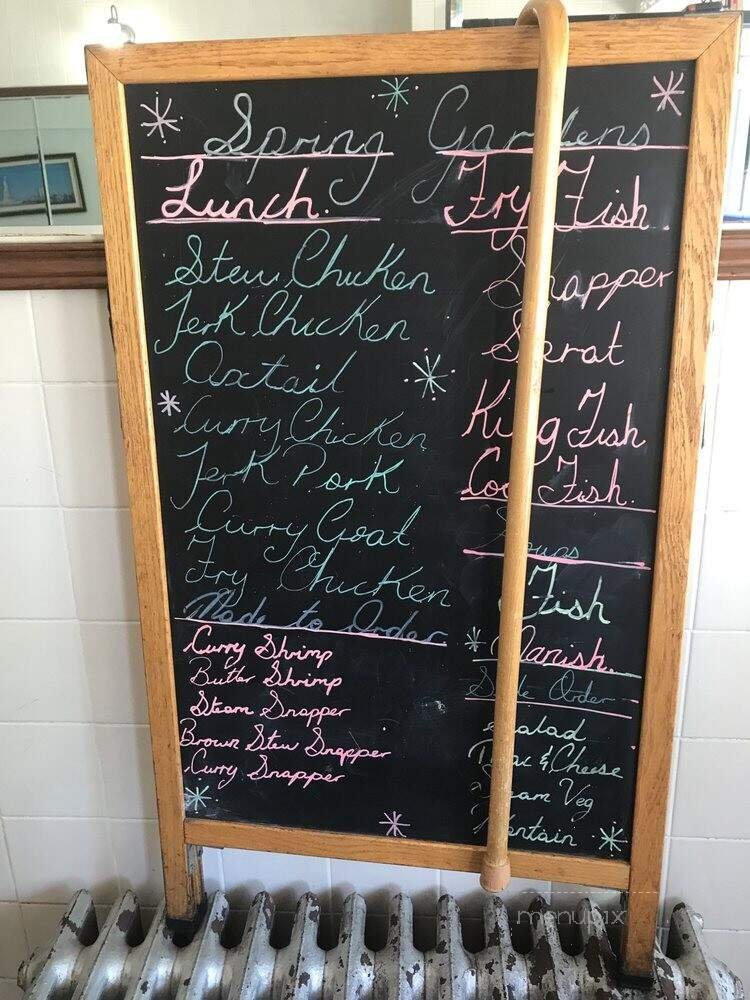 Spring Gardens
Lunch.
Stew Chicken
Jerk Chicken
Oxtail
Curry Chicken
Jerk Pork
Curry Goat
Fry Chicken
Made to Order
Curry Shrimp
Butter Shrimp
Steam Snapper
Brown Stew Snapper
Curry Snapper
Fry Fish
Snapper
King Fish
Fish.
Soups
Fish
Side Order
Salad
& Cheese
Veg
menupix